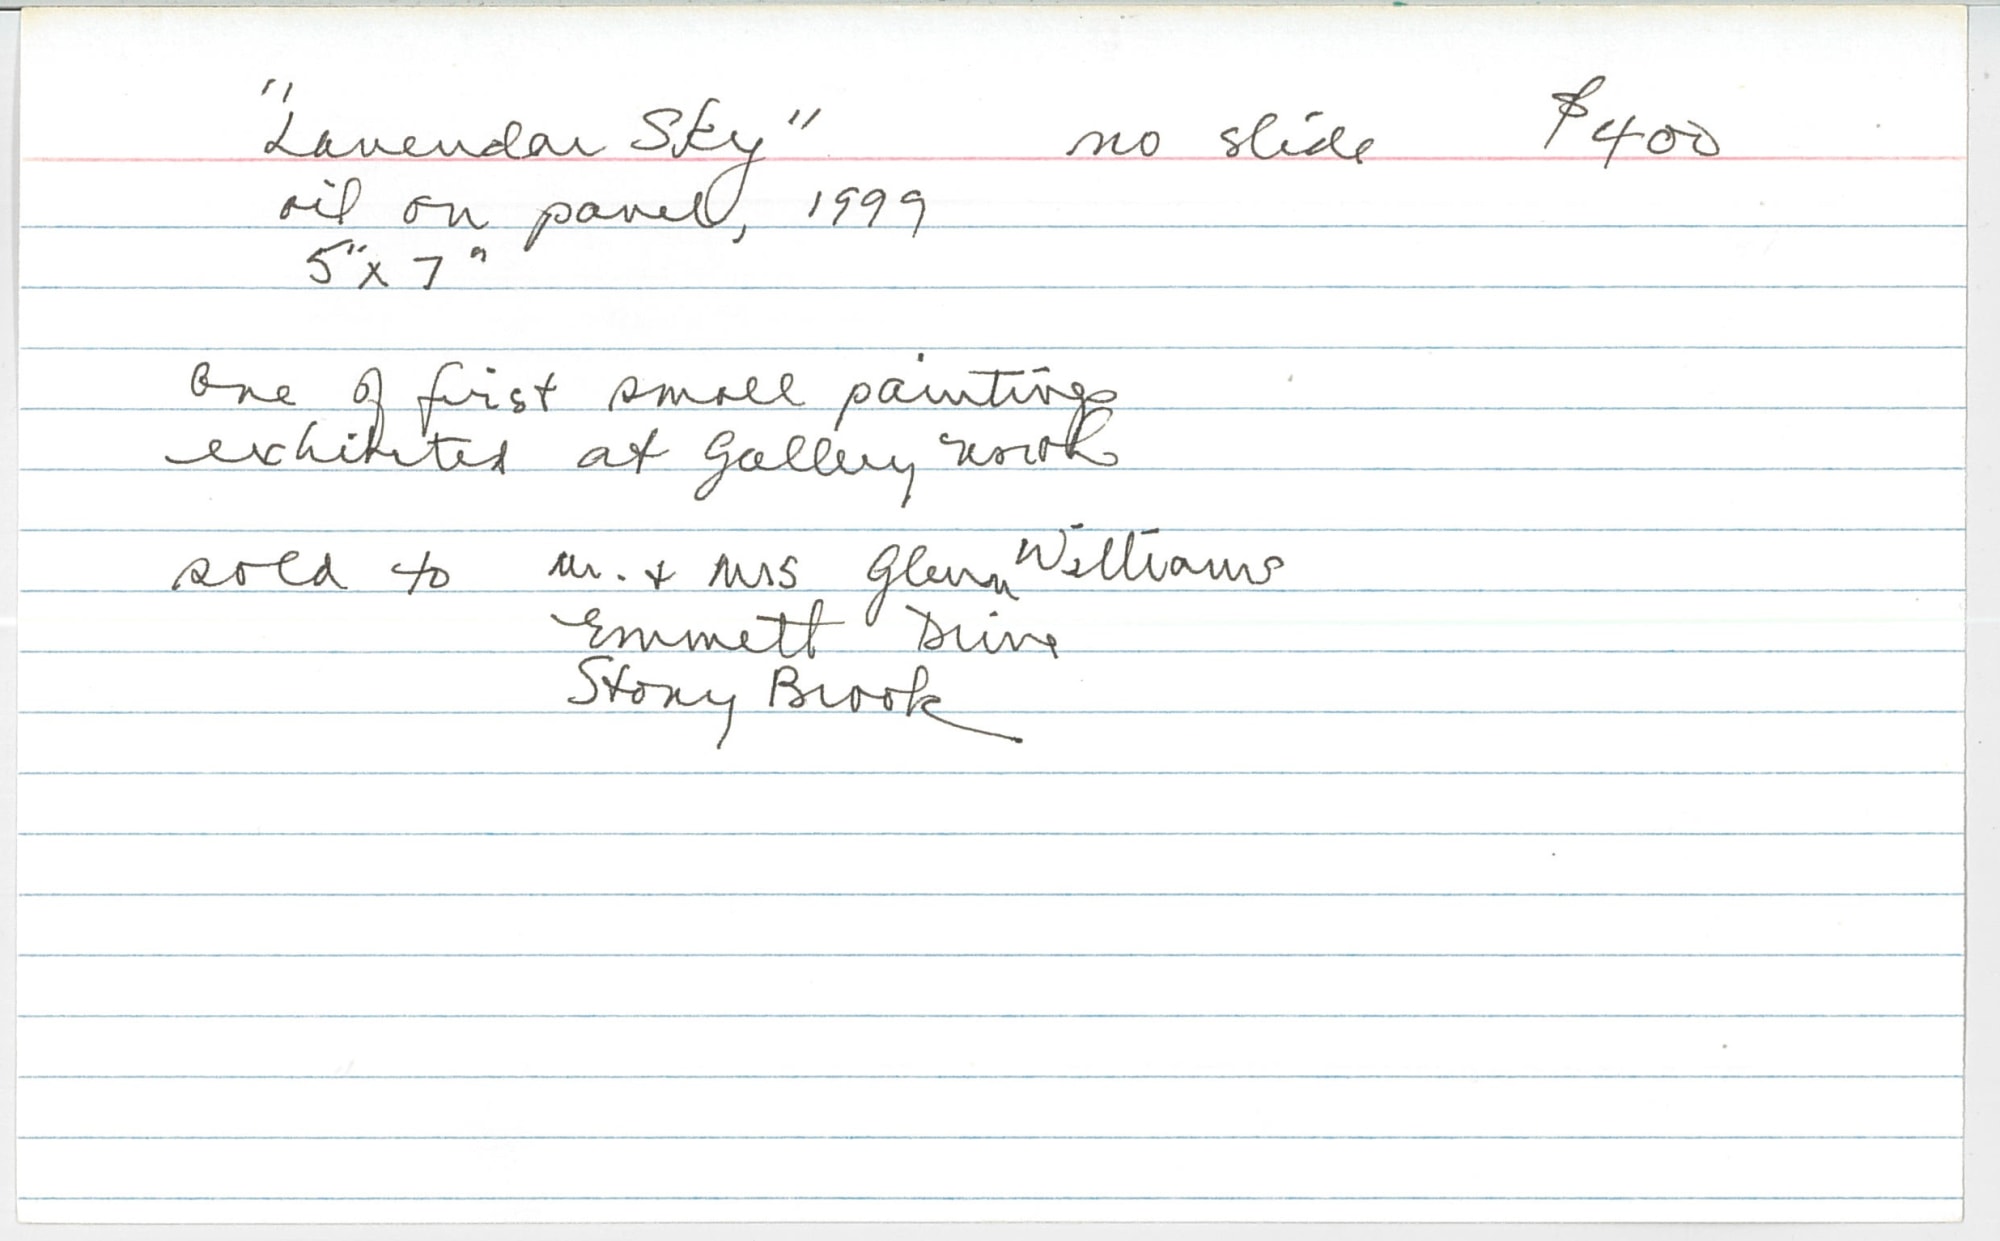 "Lavendar Sky" no slide $400
oil on panel, 1999
5" x 7"
One of first small paintings
exhibited at Gallery North
sold to Mr. + Mrs Glenn Williams
Emmett Drive
Stony Brook